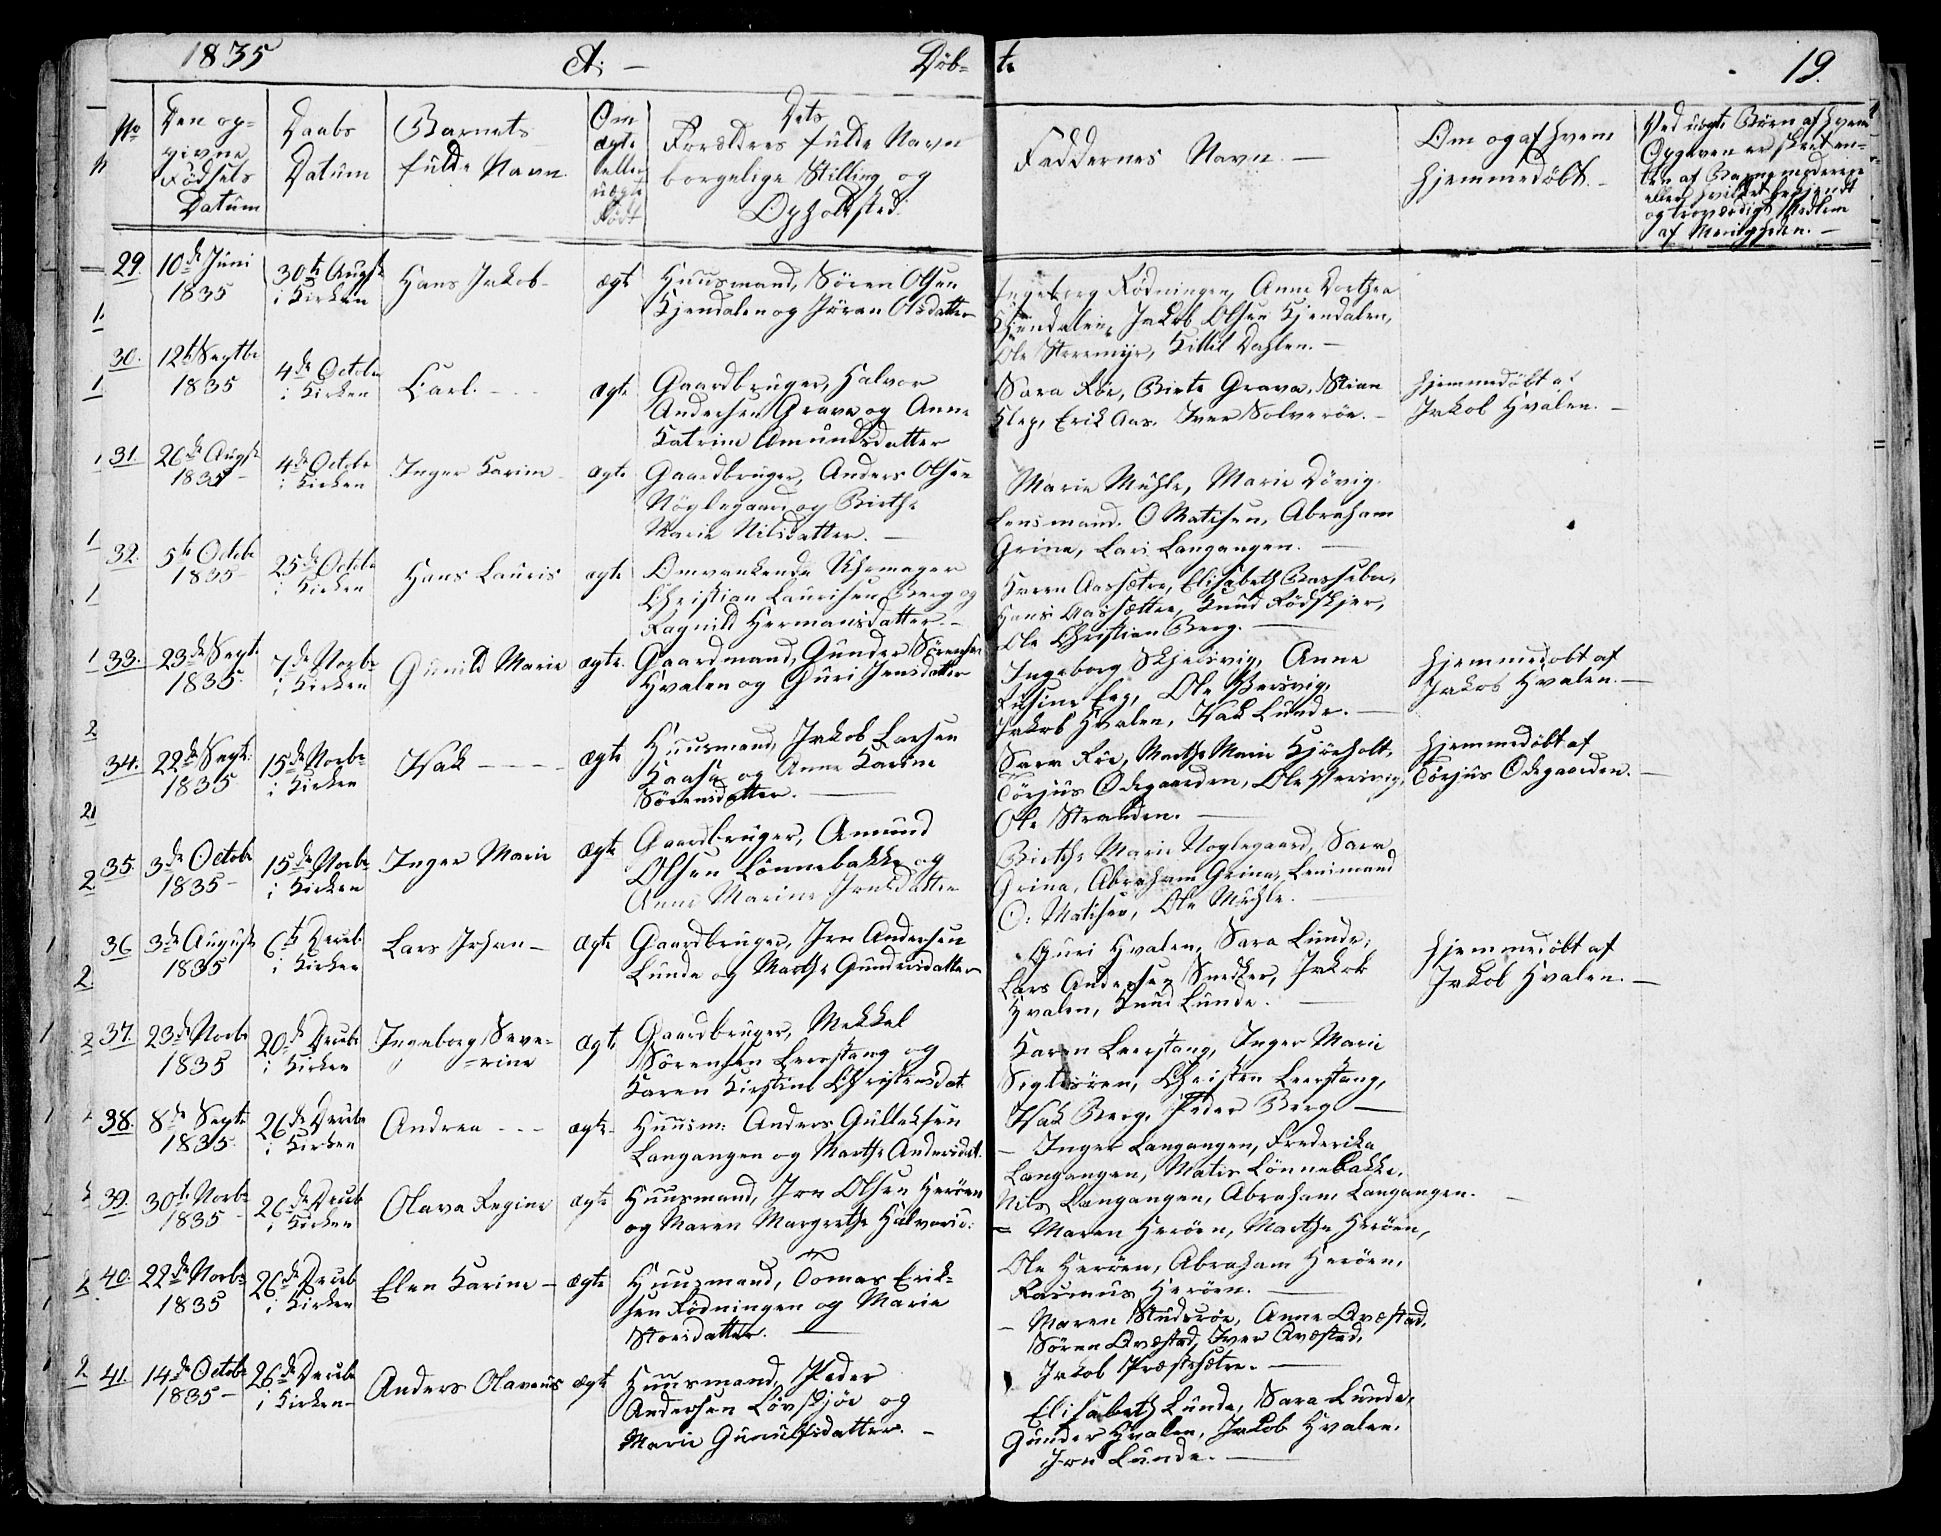 1835 A. — Døb- te 19.
No
Den op-
givne
Fødsels
Datum
Daabs
Datum
Barnets
fulde Navn.
Om
ægte
eller
uægte
født
Dets
Forældres fulde Navn
borgelige Stilling og
Opholdsted.
Faddernes Navn. —
Om og af hvem
hjemmedøbt. —
Ved uægte Børn af hvem
Opgaven er skeet en-
ten af Barnemoderen
eller hvilket bekjendt
og troværdigt Medlem
af Menigheden. —
29. 10de Juni
1835
30te Augst
i Kirken
Hans Jakob -
ægt
Huusmand, Søren Olsen
Kjendalen og Jøran Olsdatter
Ingeborg Rødningen, Anne Dorthea
Kjendalen, Jakob Olsen Kjendalen,
Ole Steremyr, Kittil Dahlen. —
30. 12te Septbr
1835
4de Octobr
i Kirken
Carl. - - -
ægte
Gaardbruger, Halvor
Andersen Grava og Anne
Katrine Amundsdatter
Sara Røe, Birte Grava, Stian
Klep, Erik Aas. Iver Solverøe. —
hjemmedøbt af
Jakob Hvalen. —
31. 26de Augst
1835 -
4de Octobr
i Kirken
Inger Karine -
ægte
Gaardbruger, Anders Olsen
Nøglegaard og Birthe
Marie Nilsdatter. —
Marie Muhle, Marie Døvig.
Lensmand. O Matisen, Abraham
Grina, Lars Langangen. —
32. 5te Octobr
1835 -
25de Octobr
i Kirken
Hans Lauris
ægte
Omvankende Uhrmager
Christian Laurisen Berg og
Ragnild Hermansdatter. -
Karen Aassætre, Elisabeth Bassebo,
Hans Aassættre, Knud Rødskjer,
Ole Christian Berg. —
33. 23de Sept.
1835.
7de Novbr
i Kirken
Gunild Marie
ægte.
Gaardmand, Gunder Sørensen
Hvalen og Guri Jensdatter
Ingeborg Skjelsvig, Anne
Rusine Eeg, Ole Bersvig,
Jakob Hvalen, Isak Lunde. —
hjemmedøbt af
Jakob Hvalen. —
34. 22de Sept.
1835
15de Novbr
i Kirken
Isak - - - -
ægte
Huusmand, Jakob Larsen
Kaasa og Anne Karine
Sørensdatter. —
Sara Røe, Marthe Marie Kjønholt,
Tørjus Ødegaarden, Ole Versvig,
Ole Stranden. —
hjemmedøbt af
Tørjus Ødegaarden. —
35. 3de Octobr
1835 -
15de Novbr
i Kirken
Inger Marie
ægte
Gaardbruger, Amund
Olsen Lønnebakke og
Anne Marine Jonsdatter
Birthe Marie Noglegaard, Sara
Grina, Abraham Grina, Lensmand
O: Matisen, Ole Muhle. —
36 3de August
1835
6te Decemb.
i Kirken
Lars Johan —
ægte
Gaardbruger, Jon Andersen
Lunde og Marthe Gundersdatter
Guri Hvalen, Sara Lunde,
Lars Andersen Snedker, Jakob
Hvalen, Knud Lunde. —
hjemmedøbt af
Jakob Hvalen. —
37. 23de Novbr
1835
20de Decmb.
i Kirken
Ingeborg Seve-
=rine
ægt.
Gaardbruger, Mekkel
Sørensen Leerstang og
Karen Kirstine Christensdat.
Karen Leerstang, Inger Marie
Sigtesøen, Christen Leerstang,
Isak Berg, Peder Berg —
38. 8de Sept
1835.
26de Decmb
i Kirken
Andrea - - -
ægte.
Huusm: Anders Gulleksen
Langangen og Marthe Andersdat.
— Inger Langangen, Frederika
Langangen, Matis Lønnebakke,
Nils Langangen, Abraham Langangen. —
39. 30te Novbr
1835 -
26de Decmb
i Kirken
Olava Regine
ægte
Huusmand, Jon Olsen Herøen
og Maren Margrethe Halvorsd:
= Maren Herøen, Marthe Herøen,
Ole Herøen, Abraham Herøen,
Rasmus Herøen. —
40. 22de Novbr
1835
26de Decmb
i Kirken
Elen Karine —
ægte
Huusmand, Tomas Erik-
sen Rødningen og Marie
Storsdatter. —
— Maren Studerøe, Anne Qvæstad,
Søren Qvæstad, Iver Qvæstad,
Jakob Præstesætre. —
41. 14de Octobr
1835 —
26de Decmb
i Kirken —
Anders Olaveus
ægt
Huusmand, Peder
Andersen Løvskjør og
Marie Gunulfsdatter. —
Elisabeth Lunde, Sara Lunde,
Gunder Hvalen, Jakob Hvalen,
Jon Lunde. —